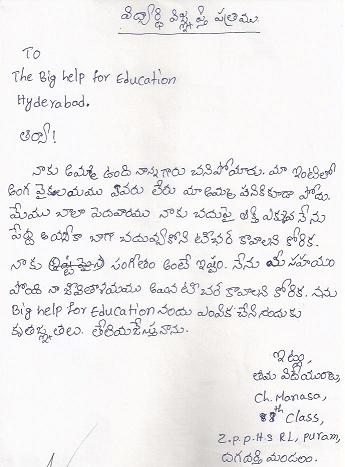 విద్యార్థి విజ్ఞప్తి పత్రము
TO
The Big help for Education
Hyderabad.
నాకు అమ్మ ఉంది నాన్న గారు చనిపోయారు. మా ఇంటిలో
అంగ వైకల్యము ఎవరు లేరు మా అమ్మ పనికికూడా పోదు.
మేము చాలా పెదవారము నాకు చదువుపై ఆసక్తి ఎక్కువ నేను
బాగా చదువుకోని టీచర్ కావాలని కోరిక.
నాకు సంగీతం అంటే ఇష్టం. నేను మీ సహయం
పొంది నా జీవితాశయము అయిన టీచర్ కావాలని కోరిక. నను
Big help for Education నందు ఎంపిక చేసినందుకు
కృతజ్ఞతలు తెలియజేస్తున్నాను.
ఇట్లు,
తమ విదేయురాలు,
Ch. Manasa,
8th Class,
Z.p.p.H.s R.L, puram,
దుగ్గడ్డి మండలం.